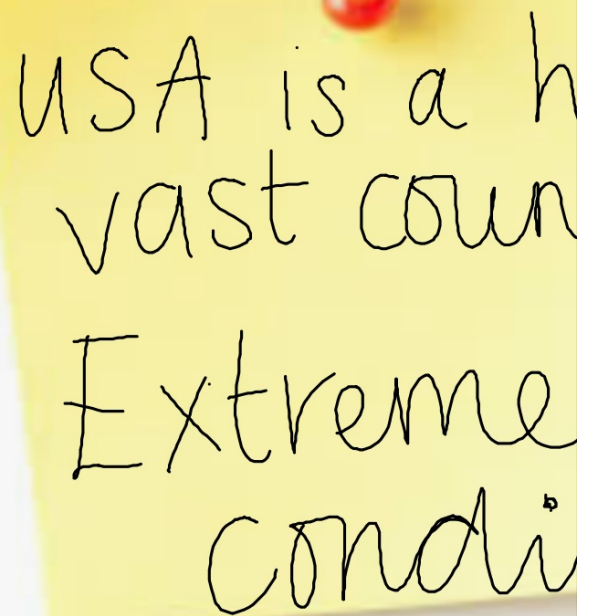 USA is a h
vast coun
Extreme
condi